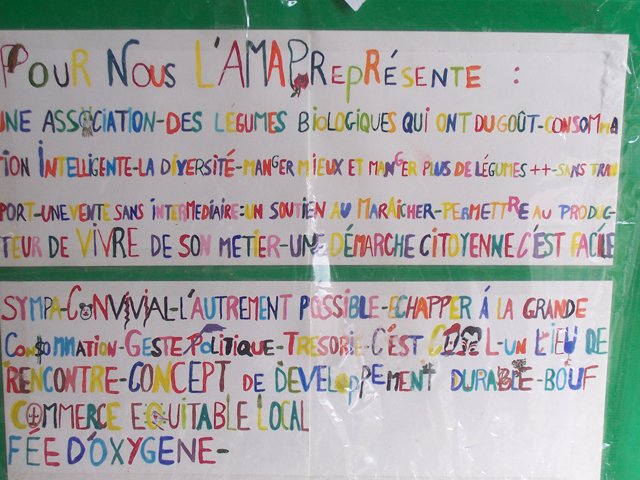 POUR NOUS L'AMAP REPRÉSENTE :
UNE ASSOCIATION-DES LEGUMES BIOLOGIQUES QUI ONT DU GOÛT-CONSOMMA
TION INTELLIGENTE-LA DIVERSITÉ-MANGER MIEUX ET MANGER PLUS DE LÉGUMES ++-SANS TRANS
PORT-UNE VENTE SANS INTERMEDIAIRE:UN SOUTIEN AU MARAICHER-PERMETTRE AU PRODUC-
TEUR DE VIVRE DE SON METIER-UNE DÉMARCHE CITOYENNE C'EST FACILE
SYMPA-CONVIVIAL-L'AUTREMENT POSSIBLE-ECHAPPER Á LA GRANDE
CONSOMMATION-GESTE POLITIQUE-TRESORIE-C'EST COOL-UN LIEU DE
RENCONTRE-CONCEPT DE DEVELOPPEMENT DURABLE-BOUF
COMMERCE EQUITABLE LOCAL
FÉE D'OXYGENE-